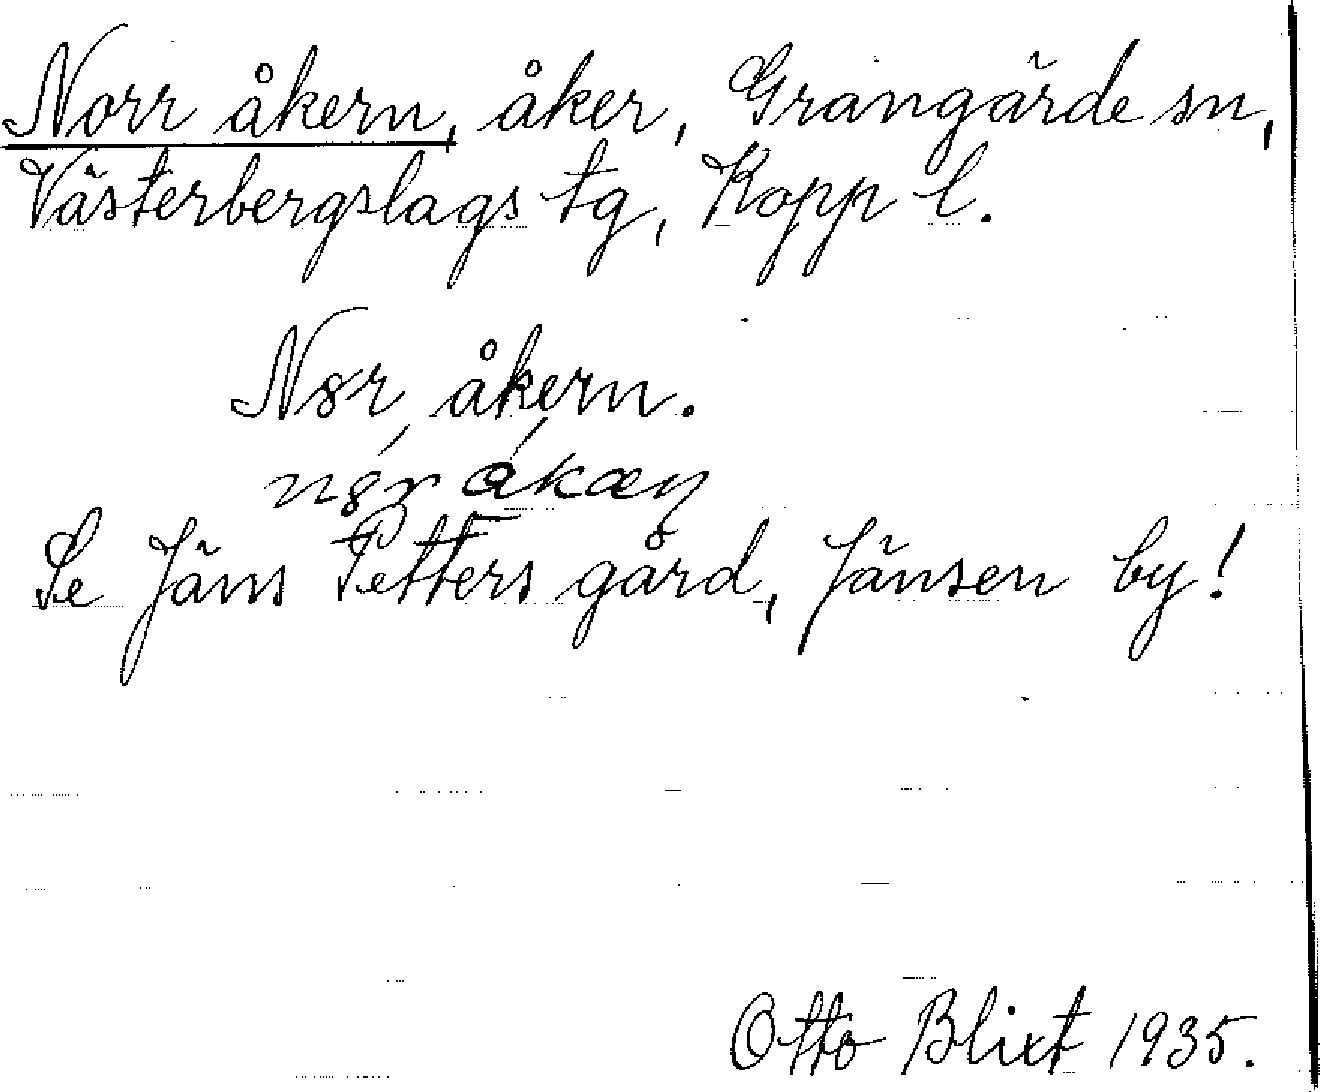 Norr åkern, åker, Grangärde sn,
Västerbergslags tg, Kopp l.
N8r åkern.
n8r åkæn
Se Jäns Petters gård, Jänsen by!
Otto Blixt 1935.